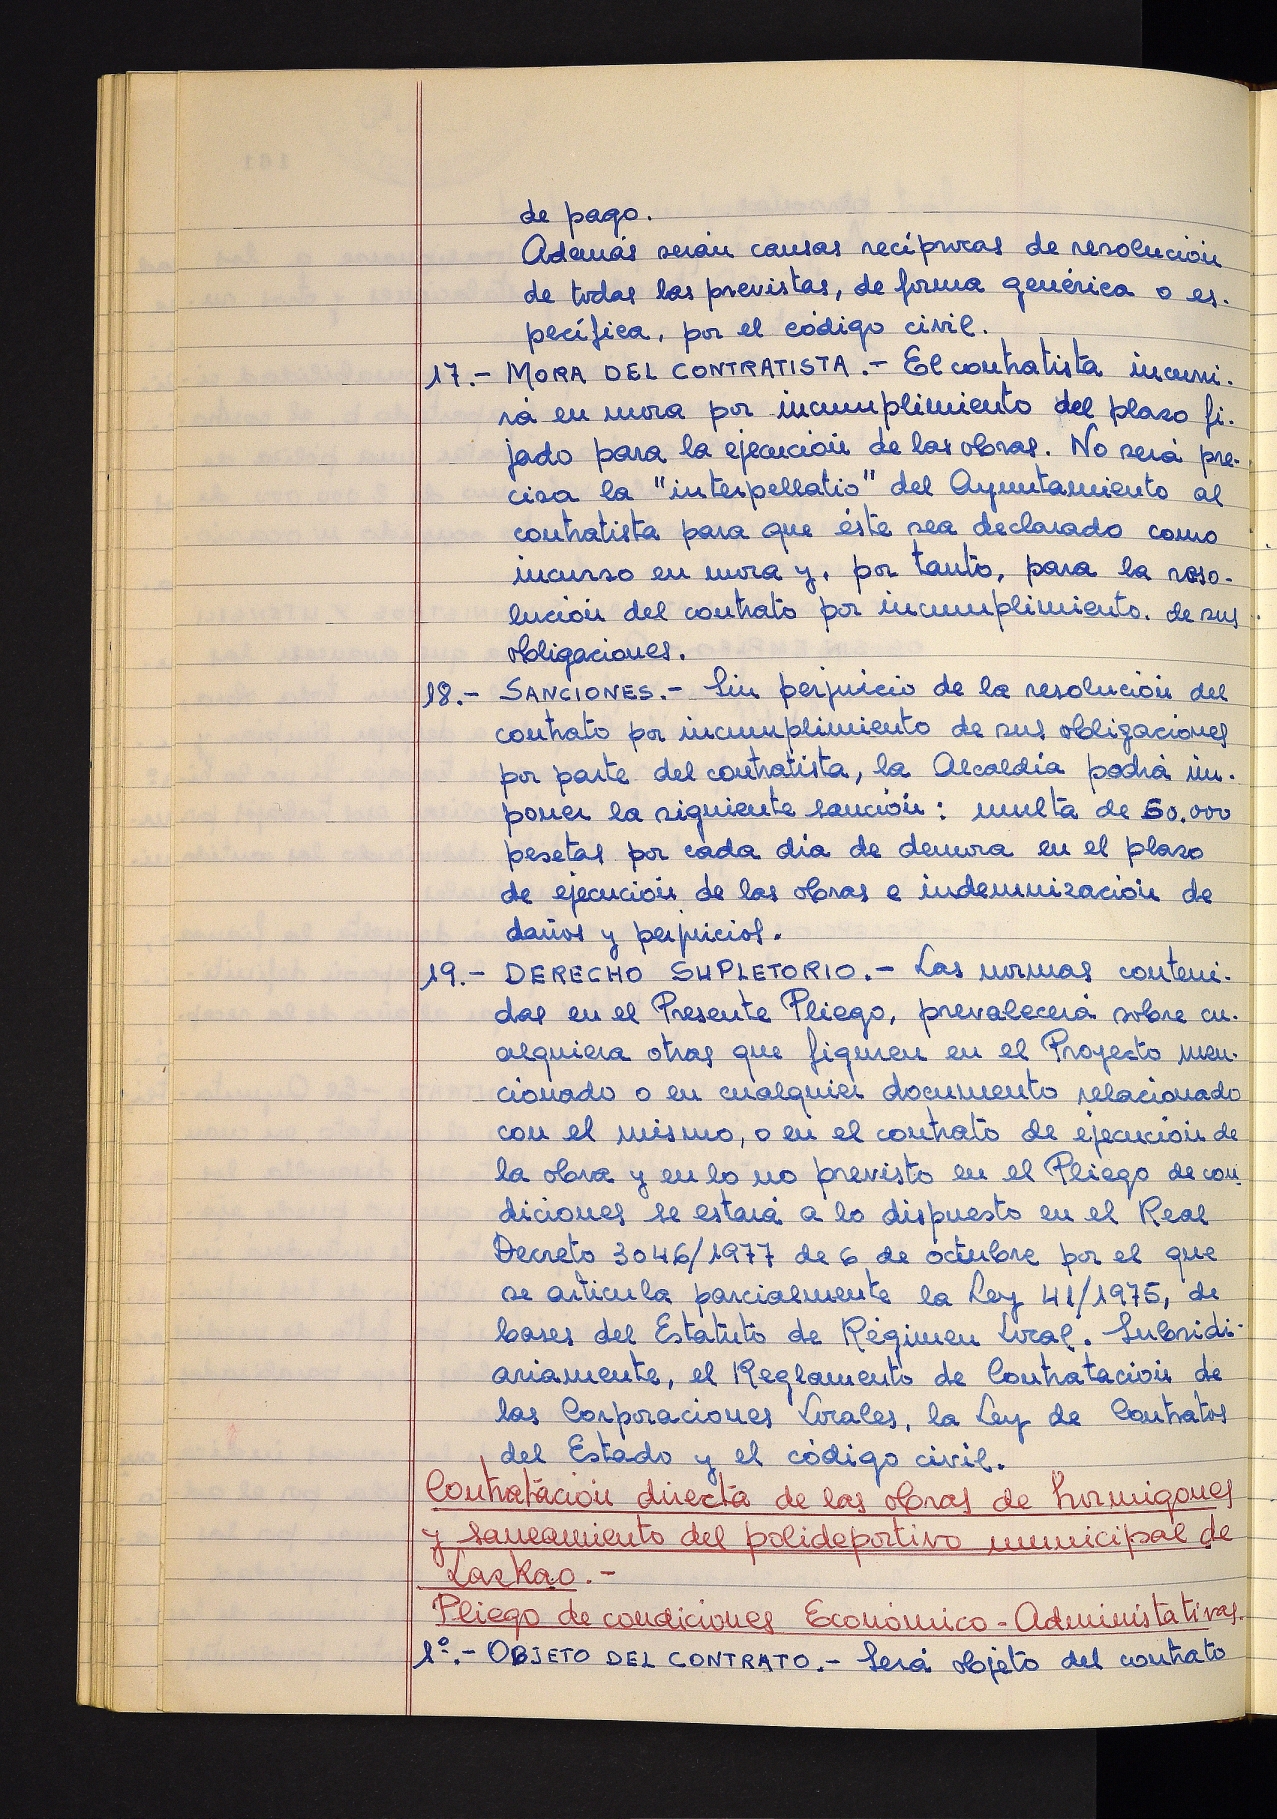 de pago.
Además serán causas recíprocas de resolución
de todas las previstas, de forma genérica o es-
pecífica, por el código civil.
17.- MORA DEL CONTRATISTA.- El contratista incurri-
rá en mora por incumplimiento del plazo fi-
jado para la ejecución de las obras. No será pre-
cisa la "interpellatio" del Ayuntamiento al
contratista para que éste sea declarado como
incurso en mora y, por tanto, para la reso-
lución del contrato por incumplimiento. de sus
obligaciones.
18.- SANCIONES.- Sin perjuicio de la resolución del
contrato por incumplimiento de sus obligaciones
por parte del contratista, la Alcaldía podrá im-
poner la siguiente sanción: multa de 50.000
pesetas por cada día de demora en el plazo
de ejecución de las obras e indemnización de
daños y perjuicios.
19.- DERECHO SUPLETORIO.- Las normas conteni-
das en el Presente Pliego, prevalecerá sobre cu-
alquiera otras que figuren en el Proyecto men-
cionado o en cualquier documento relacionado
con el mismo, o en el contrato de ejecución de
la obra y en lo no previsto en el Pliego de con-
diciones se estará a lo dispuesto en el Real
Decreto 3046/1977 de 6 de octubre por el que
se articula parcialmente la Ley 41/1975, de
bases del Estatuto de Régimen Local. Subsidi-
ariamente, el Reglamento de Contratación de
las Corporaciones Locales, la Ley de Contratos
del Estado y el código civil.
Contratación directa de las obras de hormigones
y saneamiento del polideportivo municipal de
Lazkao.-
Pliego de condiciones Económico-Administativas.
1º.- OBJETO DEL CONTRATO.- Será objeto del contrato